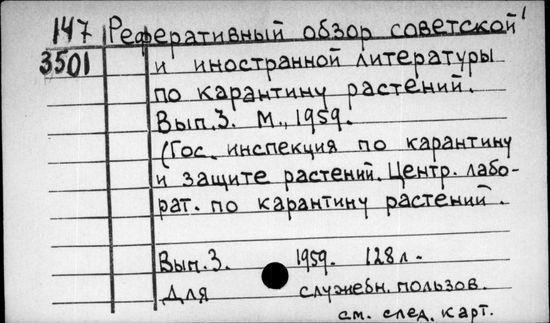 147 Реферативный обзор советской
3501 и иностранной литературы
по карантину растений.
Вып.3. М., 1959.
(Гос. инспекция по карантину
и защите растений. Центр. лабо-
рат. по карантину растений.
Вып.3. 1959. 128 л.
Для служебн. пользов.
см. след. карт.